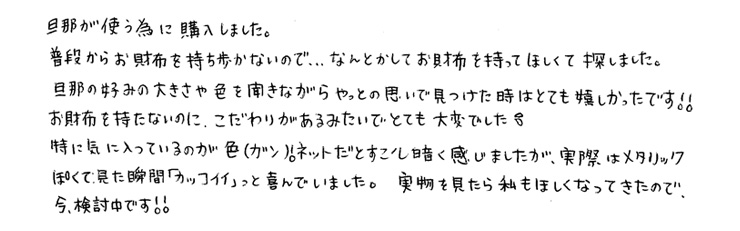 旦那が使う為に購入しました。
普段からお財布を持ち歩かないので…なんとかしてお財布を持ってほしくて探しました。
旦那の好みの大きさや色を聞きながらやっとの思いで見つけた時はとても嬉しかったです!!
お財布を持たないのに、こだわりがあるみたいでとても大変でした
特に気に入っているのが色(ガン)!ネットだとすこし暗く感じましたが、実際はメタリック
ぽくて見た瞬間「カッコイイ」っと喜んでいました。 実物を見たら私もほしくなってきたので、
今、検討中です!!